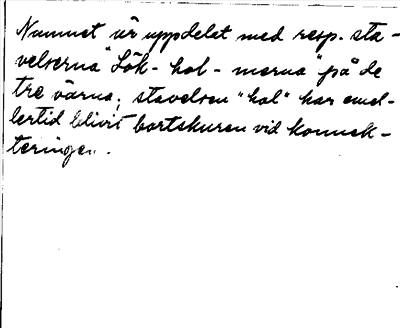 Namnet är uppdelat med resp. sta-
velserna "Lök- hol - marna" på de
tre värna; stavelsen "hol" har emel-
lertid blivit bortskuren vid konnek-
teringen.